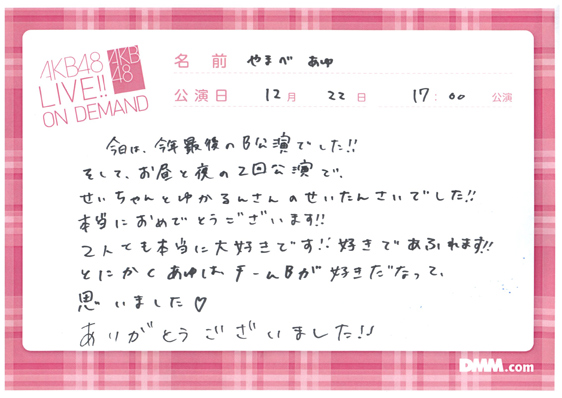 AKB48
LIVE!!
ON DEMAND
AKB
48
名前 やまべ あゆ
公演日 12月 22日 17:00 公演
今日は、今年最後のB公演でした!!
そして、お昼と夜の2回公演で、
せいちゃんとゆかるんさんのせいたんさいでした!!
本当におめでとうございます!!
2人とも本当に大好きです!! 好きであふれます!!
とにかくあゆはチームBが好きだなって、
思いました♡
ありがとうございました!!
DMM.com